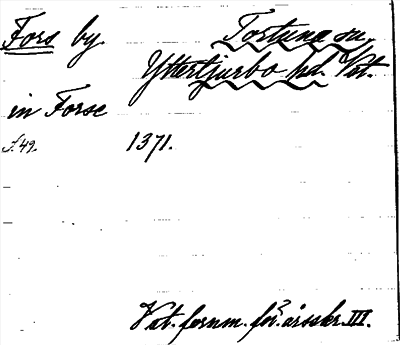 Fors by Tortuna sn,
Yttertjurbo hd. Vst.
in Forse
s. 49. 1371.
Vst. fornm. för. årsskr. III.